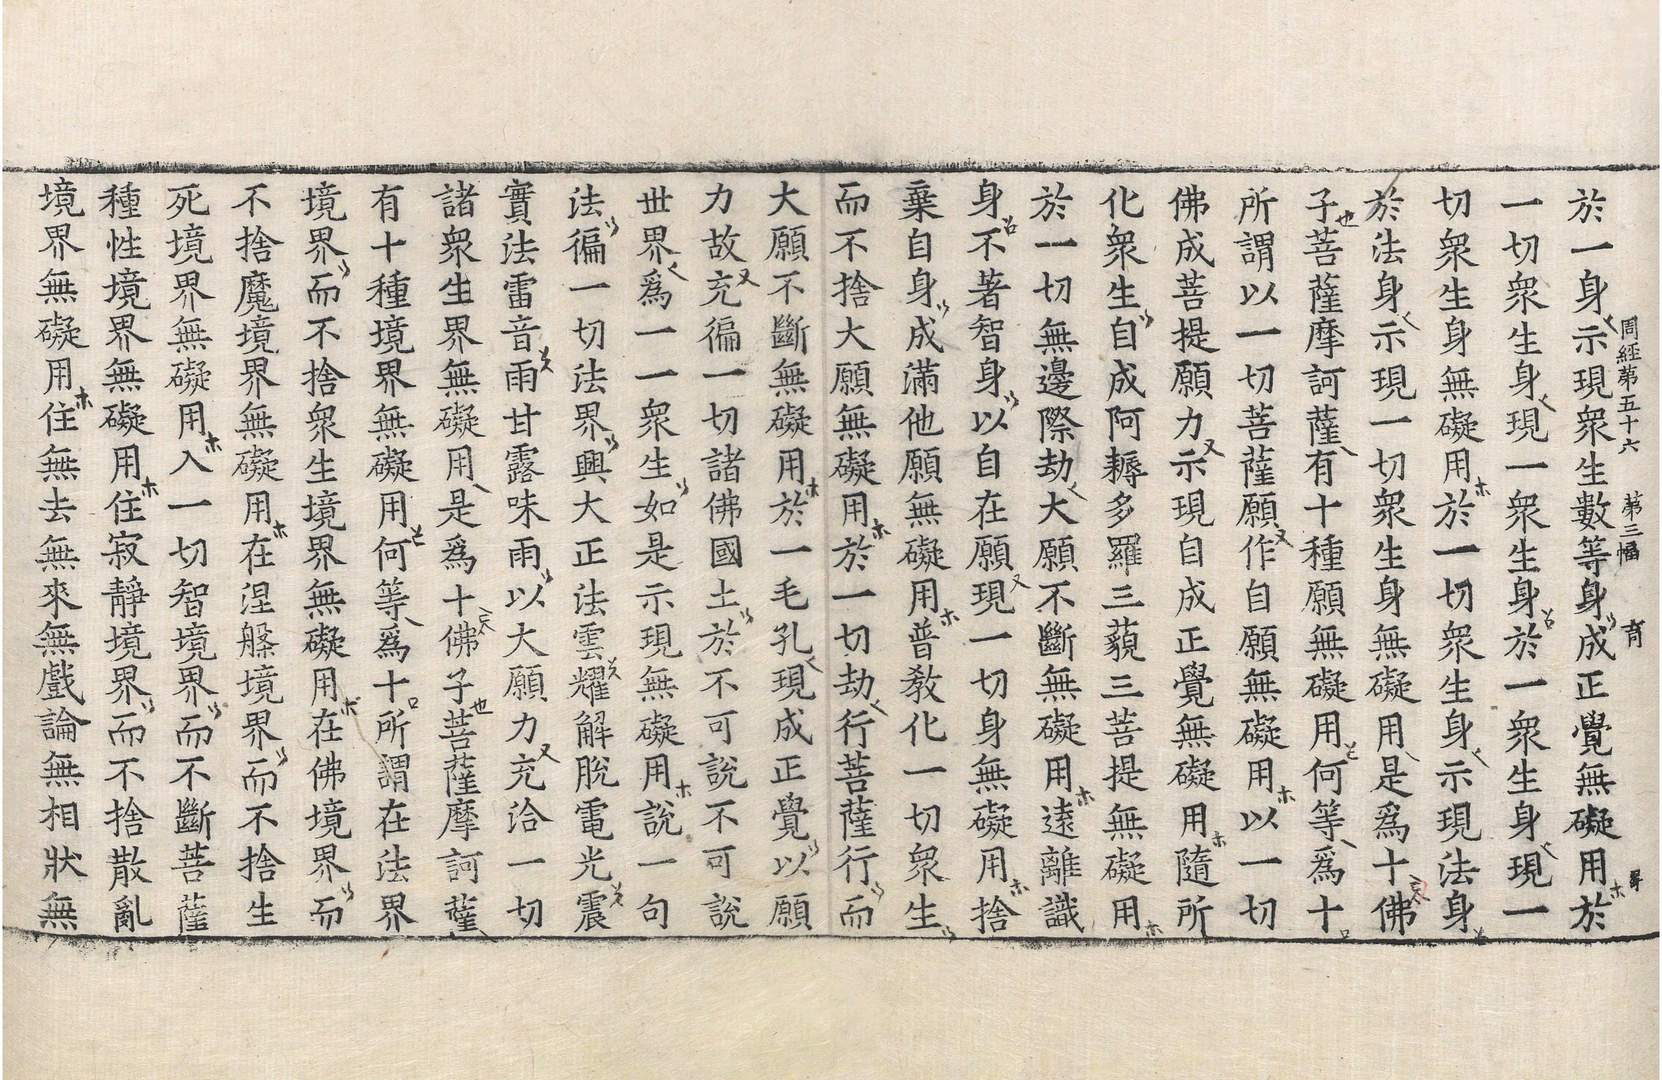 周經第五十六 第三幅 育
於一身示現衆生數等身成正覺無礙用於
一切衆生身現一衆生身於一衆生身現一
切衆生身無礙用於一切衆生身示現法身
於法身示現一切衆生身無礙用是爲十佛
子菩薩摩訶薩有十種願無礙用何等爲十
所謂以一切菩薩願作自願無礙用以一切
佛成菩提願力示現自成正覺無礙用隨所
化衆生自成阿耨多羅三藐三菩提無礙用
於一切無邊際劫大願不斷無礙用遠離識
身不著智身以自在願現一切身無礙用捨
棄自身成滿他願無礙用普教化一切衆生
而不捨大願無礙用於一切劫行菩薩行而
大願不斷無礙用於一毛孔現成正覺以願
力故充徧一切諸佛國土於不可說不可說
世界爲一一衆生如是示現無礙用說一句
法徧一切法界興大正法雲耀解脫電光震
實法雷音雨甘露味雨以大願力充洽一切
諸衆生界無礙用是爲十佛子菩薩摩訶薩
有十種境界無礙用何等爲十所謂在法界
境界而不捨衆生境界無礙用在佛境界而
不捨魔境界無礙用在涅槃境界而不捨生
死境界無礙用入一切智境界而不斷菩薩
種性境界無礙用住寂靜境界而不捨散亂
境界無礙用住無去無來無戲論無相狀無